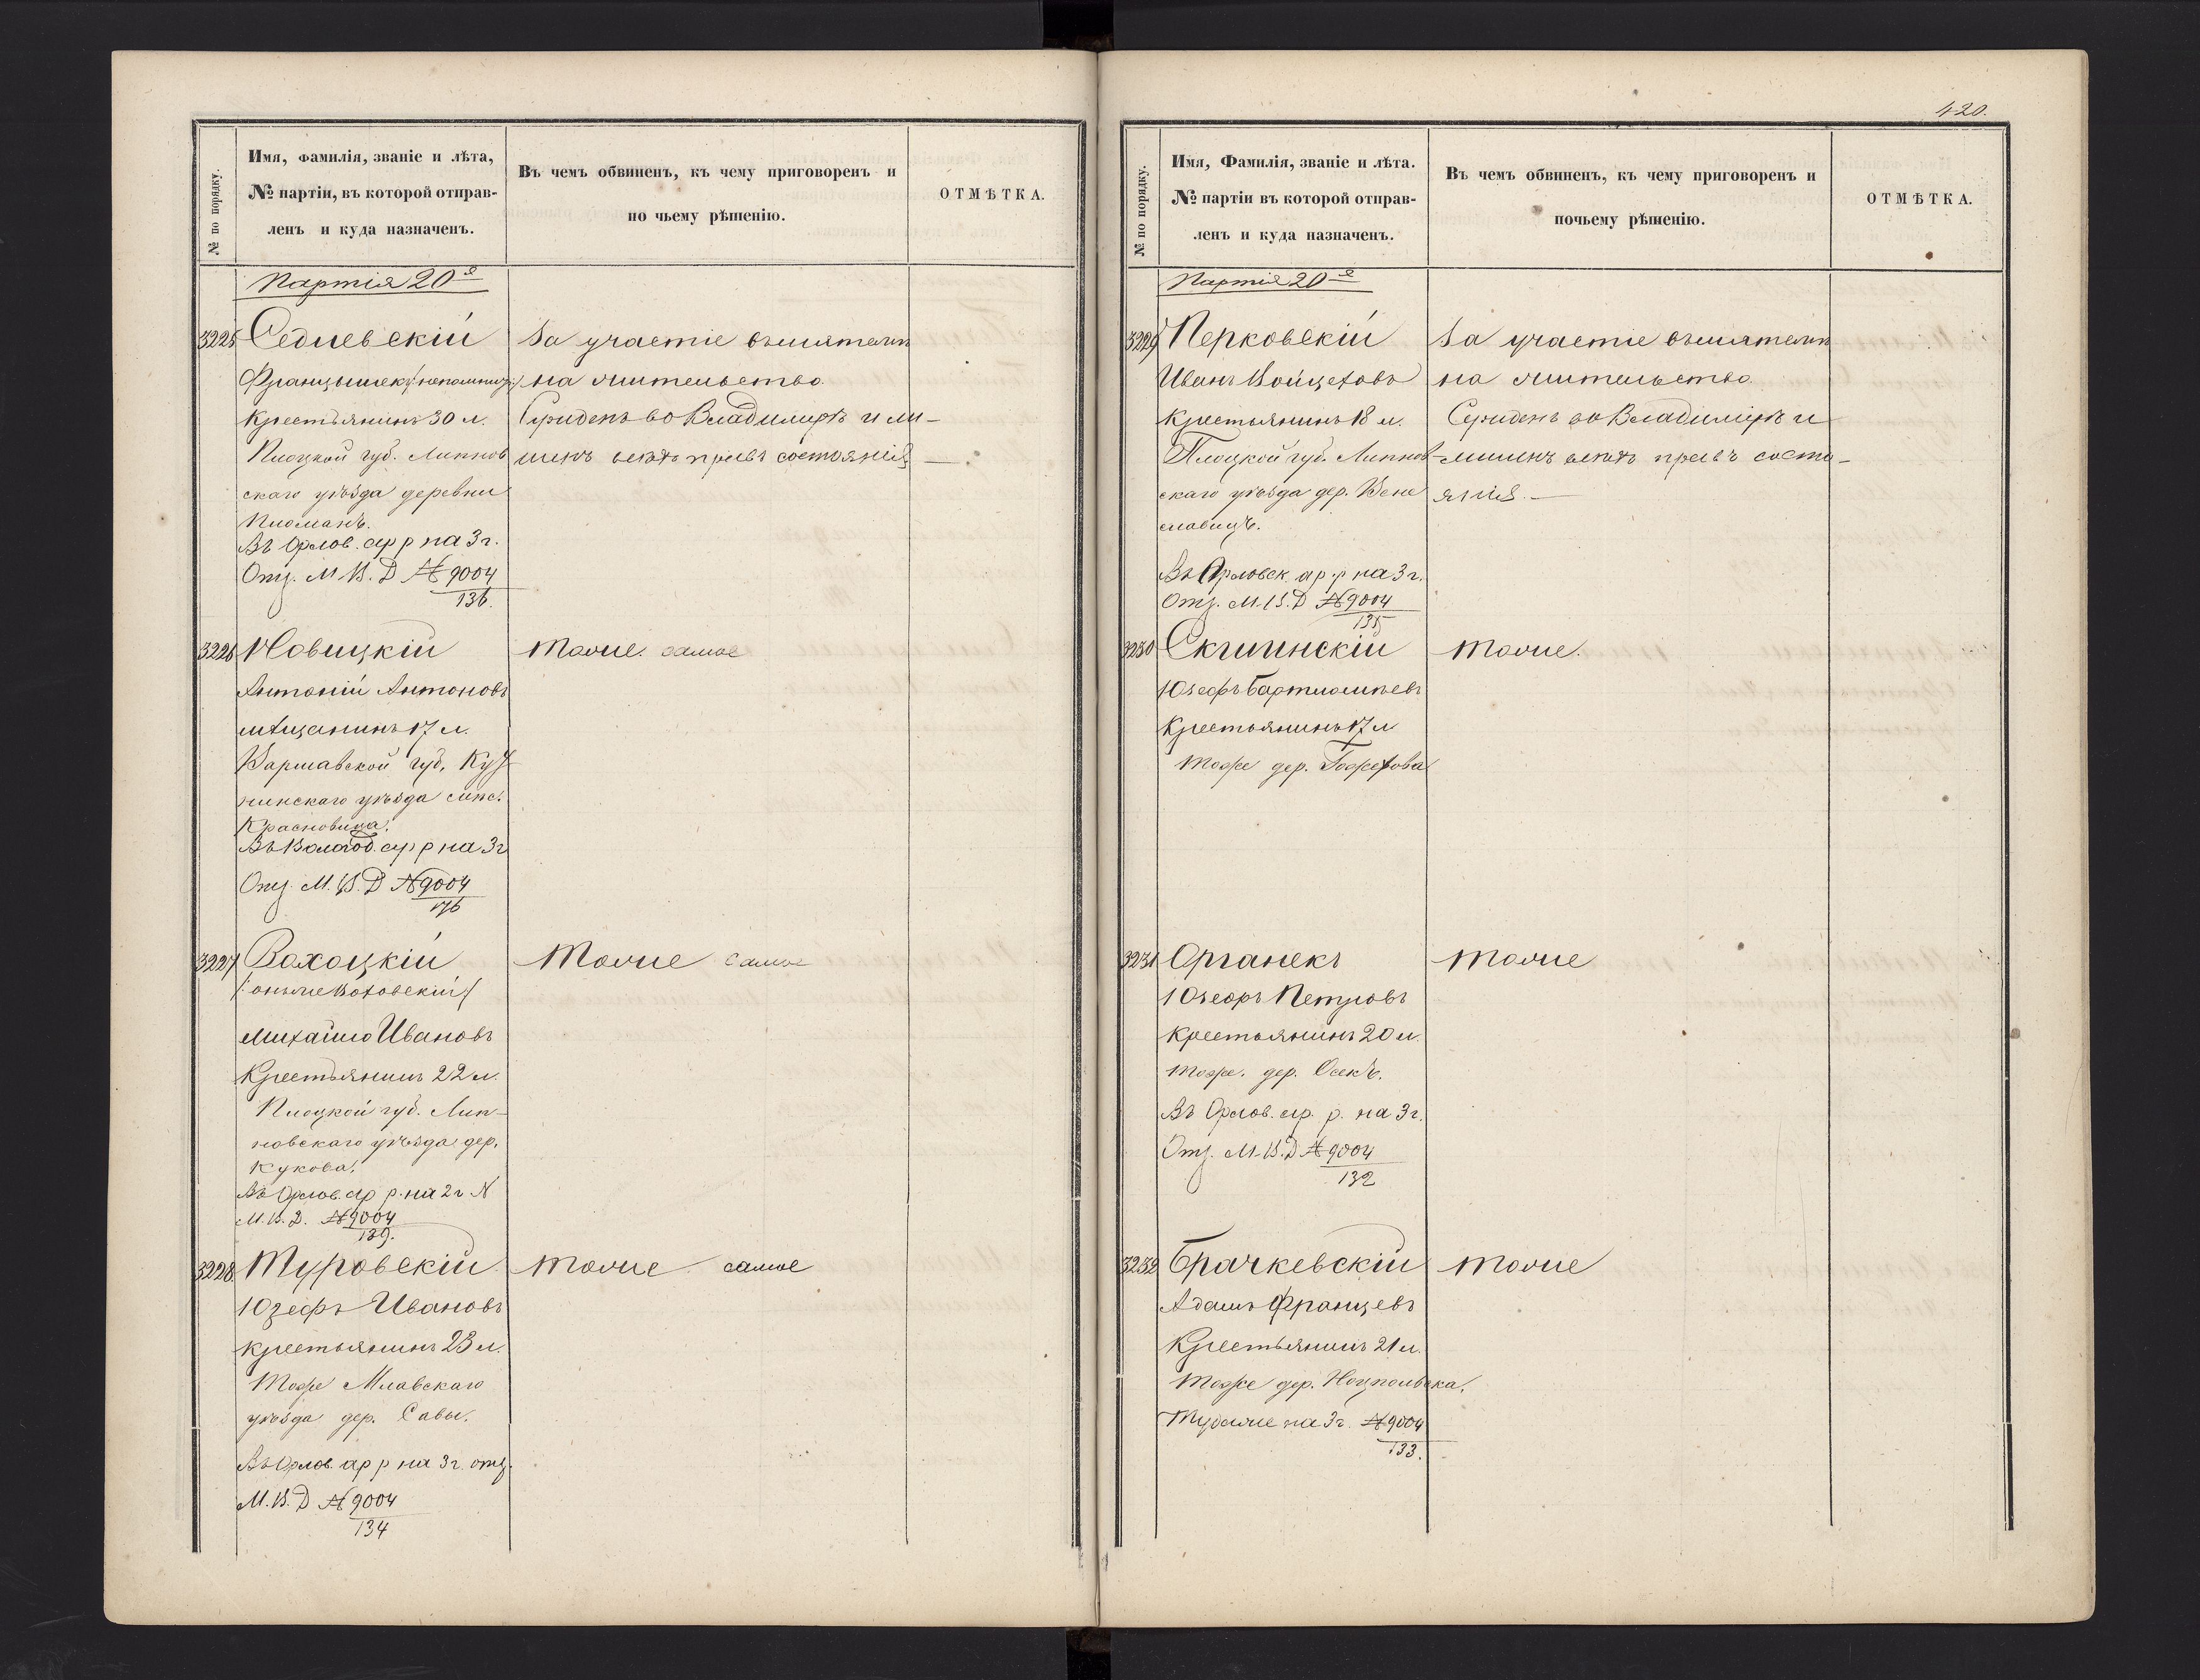 420.
№ по порядку.
Имя, Фамилія, званіе и лѣта,
№ партіи, въ которой отправ-
ленъ и куда назначенъ.
Въ чемъ обвиненъ, къ чему приговоренъ и
по чьему рѣшенію.
ОТМѢТКА.
Партія 20я
3225 Седлевскій
Францышекъ
Крестьянинъ 30 л.
Плоцкой губ. Липнов
скаго уѣзда деревни
Пломанъ.
Въ Орлов. ар р на 3 г.
Отз. М. В. Д № 9004
136.
За участіе въ мятежѣ
на жительство.
Сужденъ во Владимірѣ и ли-
шенъ всѣхъ правъ состоянія
3226 Новицкій
Антоній Антоновъ
мѣщанинъ 17 л.
Варшавской губ. Кут
нинскаго уѣзда
Красновица.
Въ Вологод. ар р на 3 г
Отз. М. В. Д № 9004
176
Тоже самое
3227 Вахоцкій
Михайло Ивановъ
Крестьянинъ 22 л.
Плоцкой губ. Лип-
новскаго уѣзда дер.
Кукова.
Въ Орлов. ар р. на 2 г
М. В. Д. № 9004
139.
Тоже самое
3228 Туровскій
Юзефъ Ивановъ
крестьянинъ 23 л.
Тоже Млавскаго
уѣзда дер. Савы.
Въ Орлов. ар р на 3 г. отз.
М. В. Д № 9004
134
Тоже самое
№ по порядку.
Имя, Фамилія, званіе и лѣта.
№ партіи въ которой отправ-
ленъ и куда назначенъ.
Въ чемъ обвиненъ, къ чему приговоренъ и
почьему рѣшенію.
ОТМѢТКА.
Партія 20я
3229 Перковскій
Иванъ Войцеховъ
Крестьянинъ 18 л.
Плоцкой губ. Липнов-
скаго уѣзда дер. Вене
славицъ.
Въ Орловск. ар. р на 3 г.
Отз. М. В. Д № 9004
135
За участіе въ мятежѣ
на жительство.
Сужденъ во Владимірѣ и
лишенъ всѣхъ правъ состо-
янія.
3230
Юзефъ Бартломѣевъ
Крестьянинъ 17 л
Тоже дер.
Тоже.
3231 Органекъ
Юзефъ Петровъ
Крестьянинъ 20 л.
Тоже. дер. Осекъ.
Въ Орлов. ар. р. на 3 г.
Отз. М. В. Д № 9004
132
Тоже
3232 Брачкевскій
Адамъ Францевъ
Крестьянинъ 21 л.
Тоже дер.
Тудаже на 3 г. № 9004
133.
Тоже